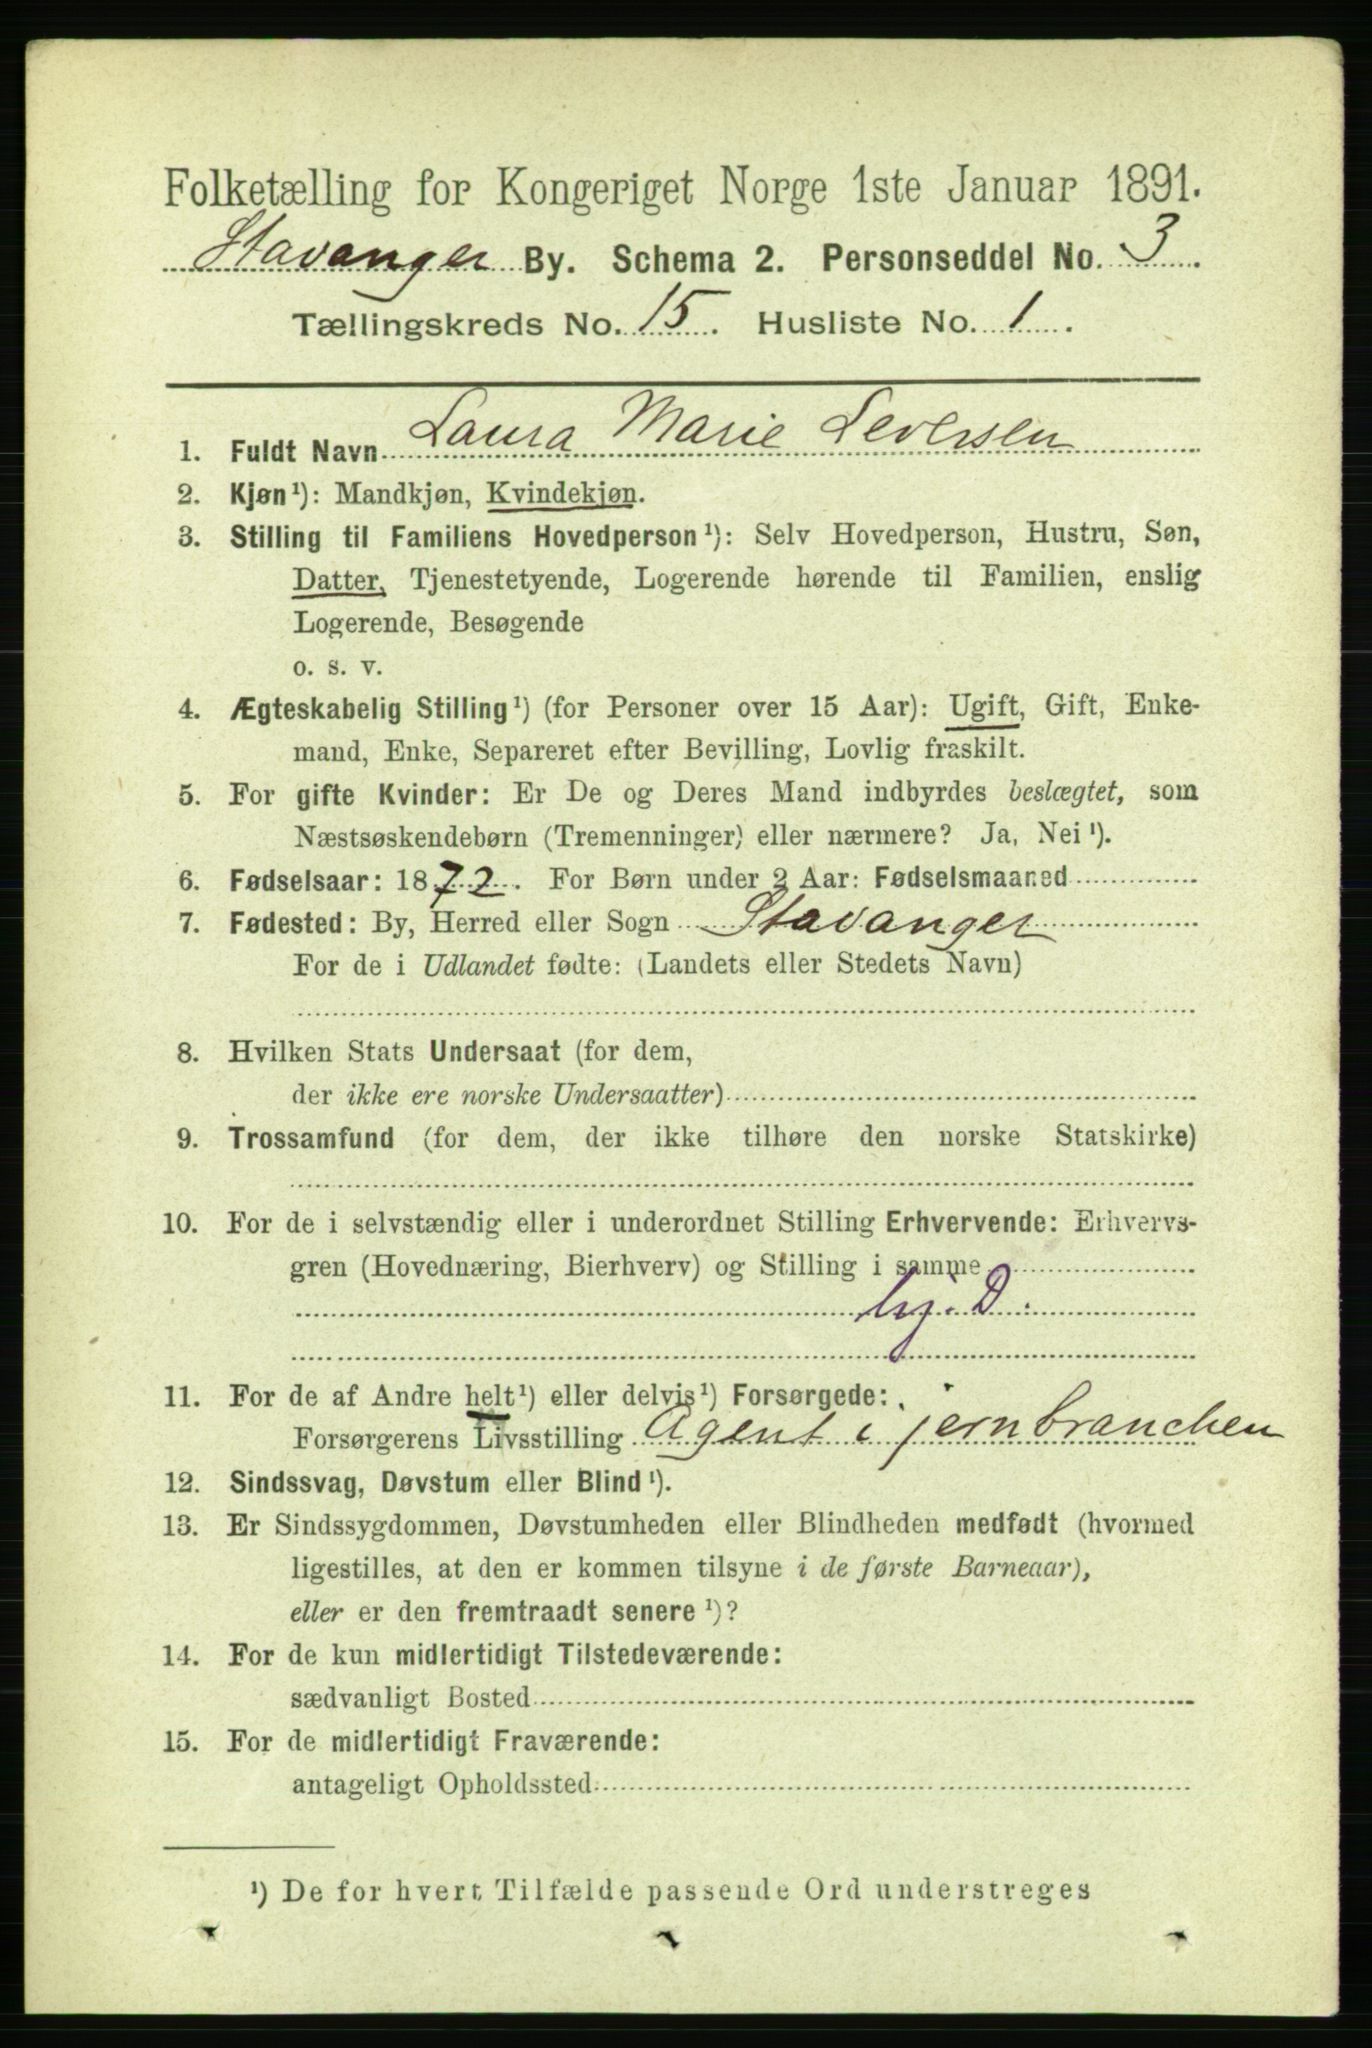 Folketælling for Kongeriget Norge 1ste Januar 1891.
Stavanger By. Schema 2. Personseddel No. 3.
Tællingskreds No. 15. Husliste No. 1.
1. Fuldt Navn Laura Marie Seversen
2. Kjøn¹): Mandkjøn, Kvindekjøn.
3. Stilling til Familiens Hovedperson¹): Selv Hovedperson, Hustru, Søn,
Datter, Tjenestetyende, Logerende hørende til Familien, enslig
Logerende, Besøgende
o. s. v.
4. Ægteskabelig Stilling¹) (for Personer over 15 Aar): Ugift, Gift, Enke-
mand, Enke, Separeret efter Bevilling, Lovlig fraskilt.
5. For gifte Kvinder: Er De og Deres Mand indbyrdes beslægtet, som
Næstsøskendebørn (Tremenninger) eller nærmere? Ja, Nei¹).
6. Fødselsaar: 1872. For Børn under 2 Aar: Fødselsmaaned
7. Fødested: By, Herred eller Sogn Stavanger
For de i Udlandet fødte: (Landets eller Stedets Navn)
8. Hvilken Stats Undersaat (for dem,
der ikke ere norske Undersaatter)
9. Trossamfund (for dem, der ikke tilhøre den norske Statskirke)
10. For de i selvstændig eller i underordnet Stilling Erhvervende: Erhvervs-
gren (Hovednæring, Bierhverv) og Stilling i samme
hj. D.
11. For de af Andre helt¹) eller delvis¹) Forsørgede:
Forsørgerens Livsstilling Agent i jernbranchen
12. Sindssvag, Døvstum eller Blind¹).
13. Er Sindssygdommen, Døvstumheden eller Blindheden medfødt (hvormed
ligestilles, at den er kommen tilsyne i de første Barneaar),
eller er den fremtraadt senere¹)?
14. For de kun midlertidigt Tilstedeværende:
sædvanligt Bosted
15. For de midlertidigt Fraværende:
antageligt Opholdssted
¹) De for hvert Tilfælde passende Ord understreges